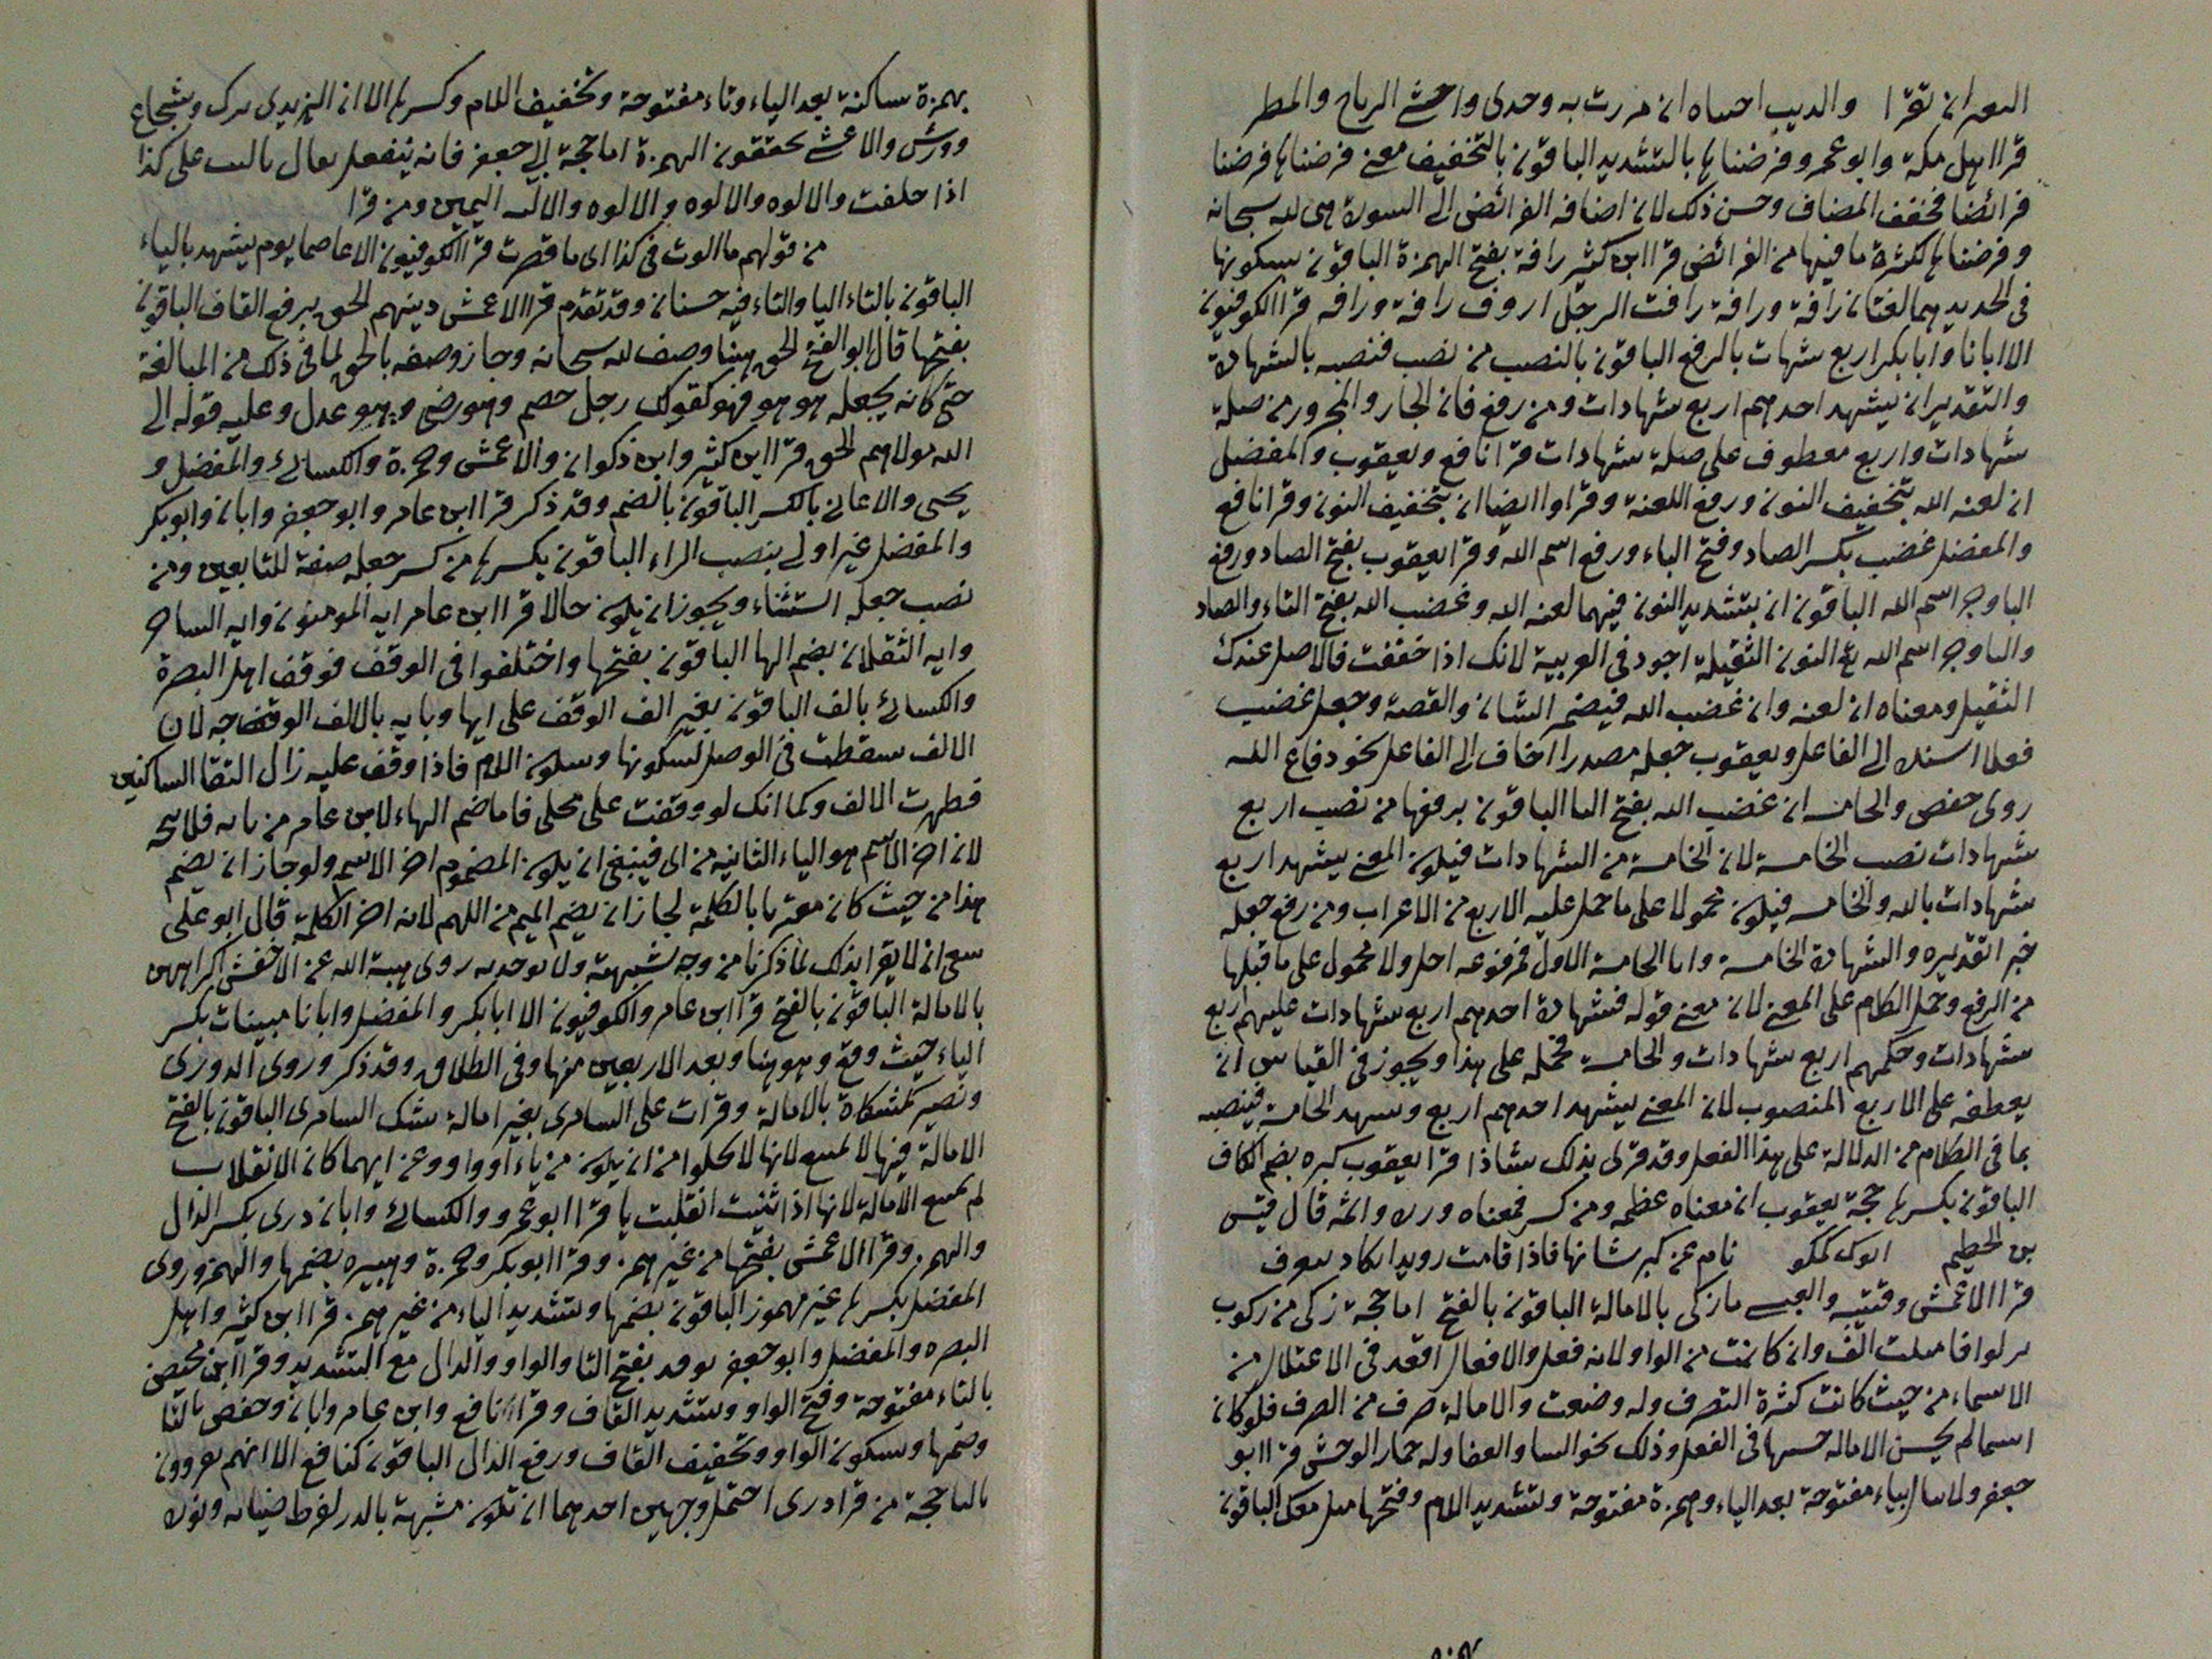 البعير ان نقرا والديب احساه ان مررت به وحدى واخشے الرياح والمطر
قرا اهل مكة وابو عمرو وفرضناها بالتشديد الباقون بالتخفيف معنى فرضناها فرضنا
فرائضا فخفف المضاف وحسن ذلك لان اضافه الفرائض الى السورة هى لله سبحانه
وفرضناها لكثرة ما فيها من الفرائض قرا ابن كثير رافة بفتح الهمزة الباقون بسكونها
فى الحديد هما لغتان رافة ورافة رافت الرجل اروف رافة ورافه قرا الكوفيون
الا ابانا وابا بكر اربع شهات بالرفع الباقون بالنصب من نصب فنصبه بالشهادة
والتقدير ان يشهد احدهم اربع شهادات ومن رفع فان الجار والمجرور من صلة
شهادات واربع معطوف على صلة شهادات قرا نافع ويعقوب والمفضل
ان لعنه الله بتخفيف النون ورفع اللعنة وقراوا ايضا ان بتخفيف النون وقرا نافع
والمفضل غضب بكسر الصاد وفتح الباء ورفع اسم الله وقرا يعقوب بفتح الصاد ورفع
الباوجر اسم الله الباقون ان بتشديد النون فيهما لعنه الله وغضب الله بفتح التاء والصاد
والباوجر اسم الله مع النون الثقيلة اجود فى العربية لانك اذا خففت فالاصل عندك
الثقيل ومعناه ان لعنه وان غضب الله فيضمر الشان والقصة وجعل غضب
فعلا اسند الى الفاعل ويعقوب جعله مصدرا اضاف الى الفاعل نحو دفاع الله
روى حفص والخامسه ان غضب الله بفتح التا الباقون برفعها من نصب اربع
شهادات نصب الخامسة لان الخامسة من الشهادات فيلون المعنى يشهد اربع
شهادات بالله والخامسه فيلون محمولا على ما حمل عليه الاربع من الاعراب ومن رفع جعله
خبر اتقديره والشهادة الخامسة واما الخامسة الاول فمرفوعه احل ولا محمول على ما قبلها
من الرفع وحمل الكلام على المعنى لان معنى قوله فشهادة احدهم اربع شهادات عليهم اربع
شهادات وحكمهم اربع شهادات والخامسة فحمله على هذا ويجوز فى القياس ان
يعطفه على الاربع المنصوب لان المعنى يشهد احدهم اربع ويشهد الخامسة فينصبه
بما فى الكلام من الدلالة على هذا الفعل وقد قرى بذلك شاذا قرا يعقوب كبره بضم الكاف
الباقون بكسرها حجة يعقوب ان معناه عظمه ومن كسر فمعناه وزره واثمه قال قيس
بن الخطيم تنام عن كبر شانها فاذا قامت رويدا تكاد
قرا الاعمش وقتيبه والعبسے مازكى بالامالة الباقون بالفتح اما حجة زكى من زكوت
فاميلت الف وان كانت من الواو لانه فعل والافعال اقعد فى الاعتلال من
الاسماء من حيث كانت كثرة التصرف وله وضعت والامالة صرف من الصرف فلو كان
اسما لم يحسن الاماله حسنها فى الفعل وذلك نحو والعفا وله حمار الوحش قرا ابو
جعفر ولا يتال بياء مفتوحة بعد الياء وهمزة مفتوحة وبتشديد اللام وفتحها الباقون
بهمزة ساكنة بعد الياء وتاء مفتوحة وتخفيف اللام وكسرها الا ان اليزيدى ترك وشجاع
وورش والاعشے يحققون الهمزة اما حجة ابى جعفر فانه يتفعل يقال تاليت على كذا
اذا حلفت والالوه والالوه والالوه والاليه اليمين ومن قرا
من قولهم ما الوت فى كذا اى ما قصرت قرا الكوفيون الا عاصما يوم يشهد بالياء
الباقون بالتاء اليا والتاء فيه حسنان وقد تقدم قرا الاعمش دينهم الحق برفع القاف الباقون
بفتحها قال ابو الفتح الحق هنا وصف لله سبحانه وجاز وصفه بالحق لما فى ذلك من المبالغة
حتى كانه يجعله هو هو فهو كقولك رجل خصم وهو رضى وهو عدل وعليه قوله الى
الله مولاهم الحق قرا ابن كثير وابن ذكوان والاعمش وحمزة والكسائے والمفضل و
يحيى والاعالى بالكسر الباقون بالضم وقد ذكر قرا ابن عامر وابو جعفر وابان وابو بكر
والمفضل غير اولى بنصب الراء الباقون بكسرها من كسر جعله صفة للتابعين ومن
نصب جعله استثناء ويجوز ان يلون حالا قرا ابن عامر ايه المومنون وايه الساحر
وايه الثقلان بضم الها الباقون بفتحها واختلفوا فى الوقف فوقف اهل البصرة
والكسائے بالف الباقون بغير الف الوقف على ايها وبايه بالالف الوقف جه لان
الالف سقطت فى الوصل لسكونها وسلون اللام فاذا وقف عليه زال التقا الساكنين
فظهرت الالف وكما انك لو وقفت على محلى فاما ضم الهاء لابن عامر من بابه فلا
لان اخر الاسم هو الياء الثانيه من اى فينبغى ان يلون المضموم اخر الاسم ولو جاز ان يضم
هذا من حيث كان مقتربا بالكلمة لجاز ان يضم الميم من اللهم لانه اخر الكلمة قال ابو على
ينبغى ان لا يقرا بذلك لما ذكرنا من وجه شبهة ولا يوخد به روى هبة الله عن الاخفش اكراههن
بالامالة الباقون بالفتح قرا ابن عامر والكوفيون الا ابا بكر والمفضل وابانا مبينات بكسر
الياء حيث وقع وهو هنا وبعد الاربعين منها وفى الطلاق وقد ذكر وروى الدورى
ونصير كمشكاة بالامالة وقرات على السامرى بغير امالة شك السامرى الباقون بالفتح
الامالة فيها لا تمتنع لانها لا تخلوا من ان يلون من ياء او واو وعن ايهما كان الانقلاب
لم تمتنع الامالة لانها اذا ثنيت انقلبت يا قرا ابو عمرو والكسائے وابان درى بكسر الدال
والهمز وقرا الاعمش بفتحها من غير همز وقرا ابو بكر وحمزة وهبيره بضمها والهمز وروى
المفضل بكسرها غير مهموز الباقون بضمها وتشديد الياء من غير همز قرا ابن كثير واهل
البصره والمفضل وابو جعفر توقد بفتح التا والواو والدال مع التشديد وقرا ابن محيصن
بالتاء مفتوحة وفتح الواو وتشديد القاف وقرا نافع وابن عامر وابان وحفص بالتا
وضمها وسكون الواو وتخفيف القاف ورفع الدال الباقون كنافع الا انهم يقرون
بالتا حجة من قرا درى احتمل وجهين احدهما ان تلون مشبهة بالدر لفرط ضيائه ونوره